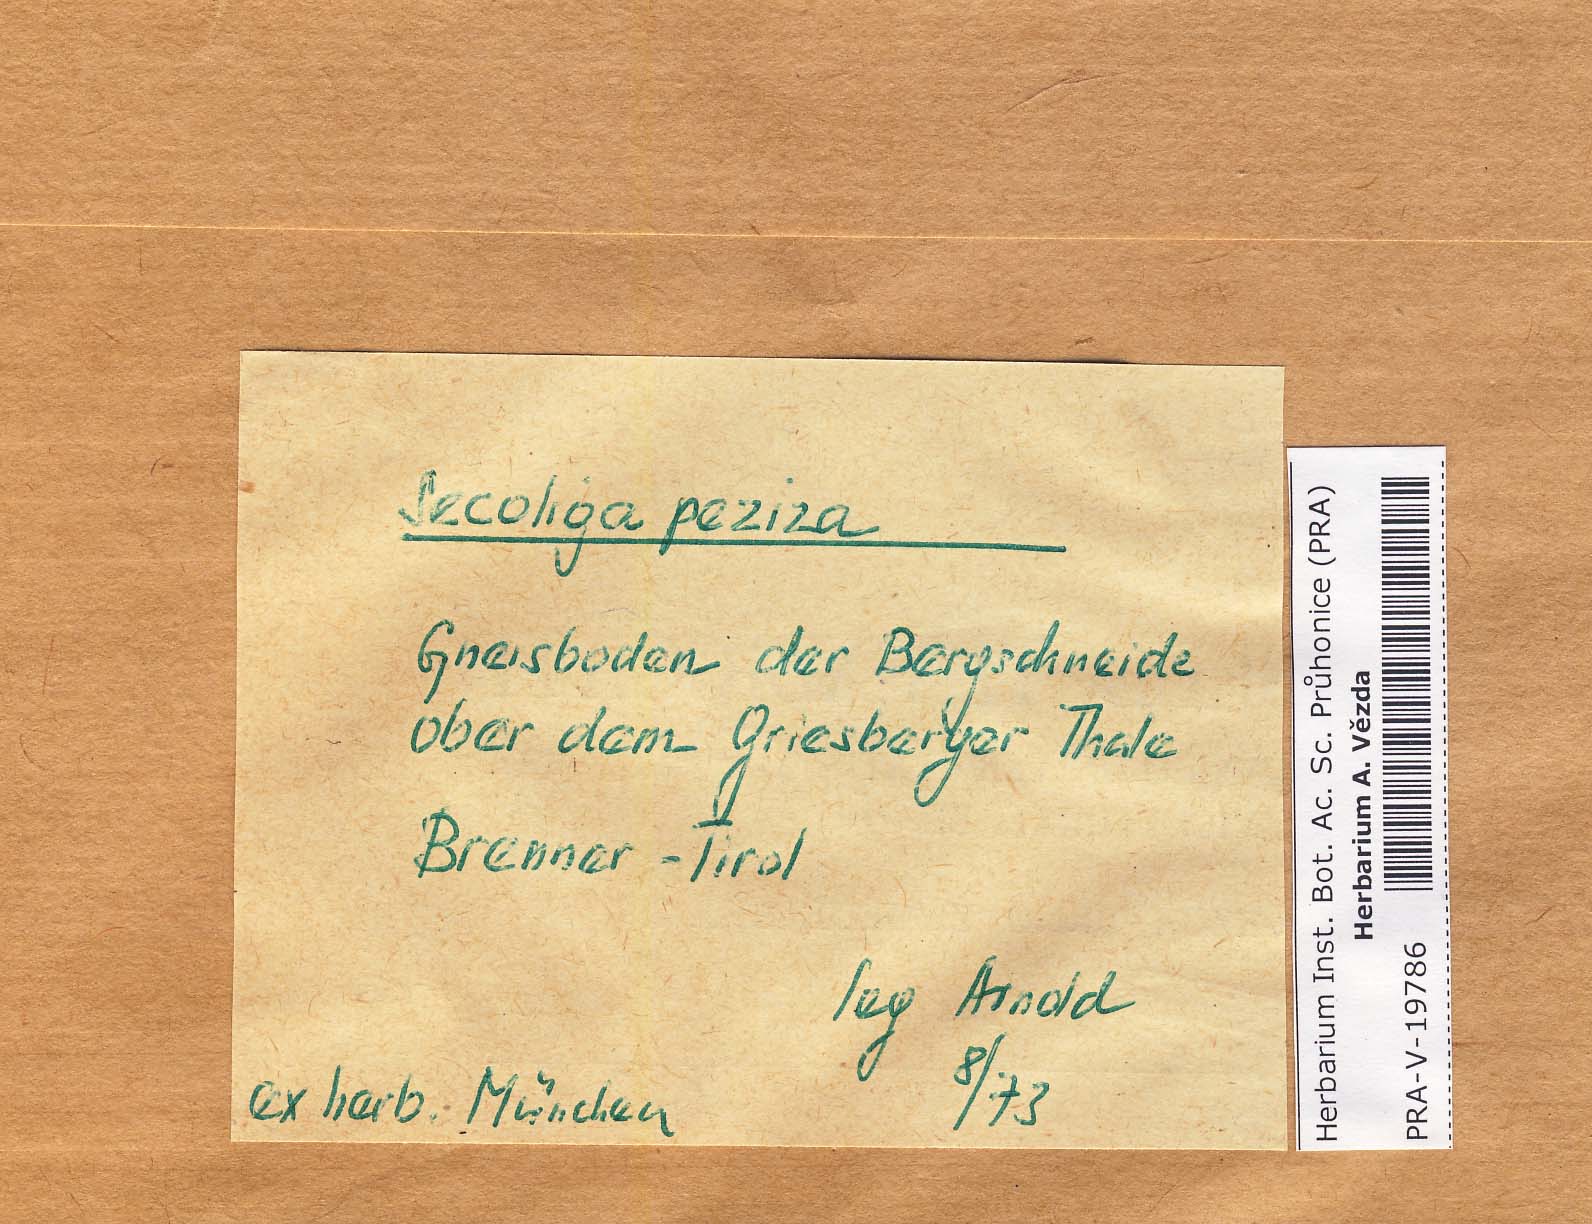 Secoliga peziza
Gneisboden der Bergschneide
ober dem Griesberger Thale
Brenner - Tirol
leg Arnold
8/73
ex herb. München
Herbarium Inst. Bot. Ac. Sc. Průhonice (PRA)
Herbarium A. Vězda
PRA-V-19786